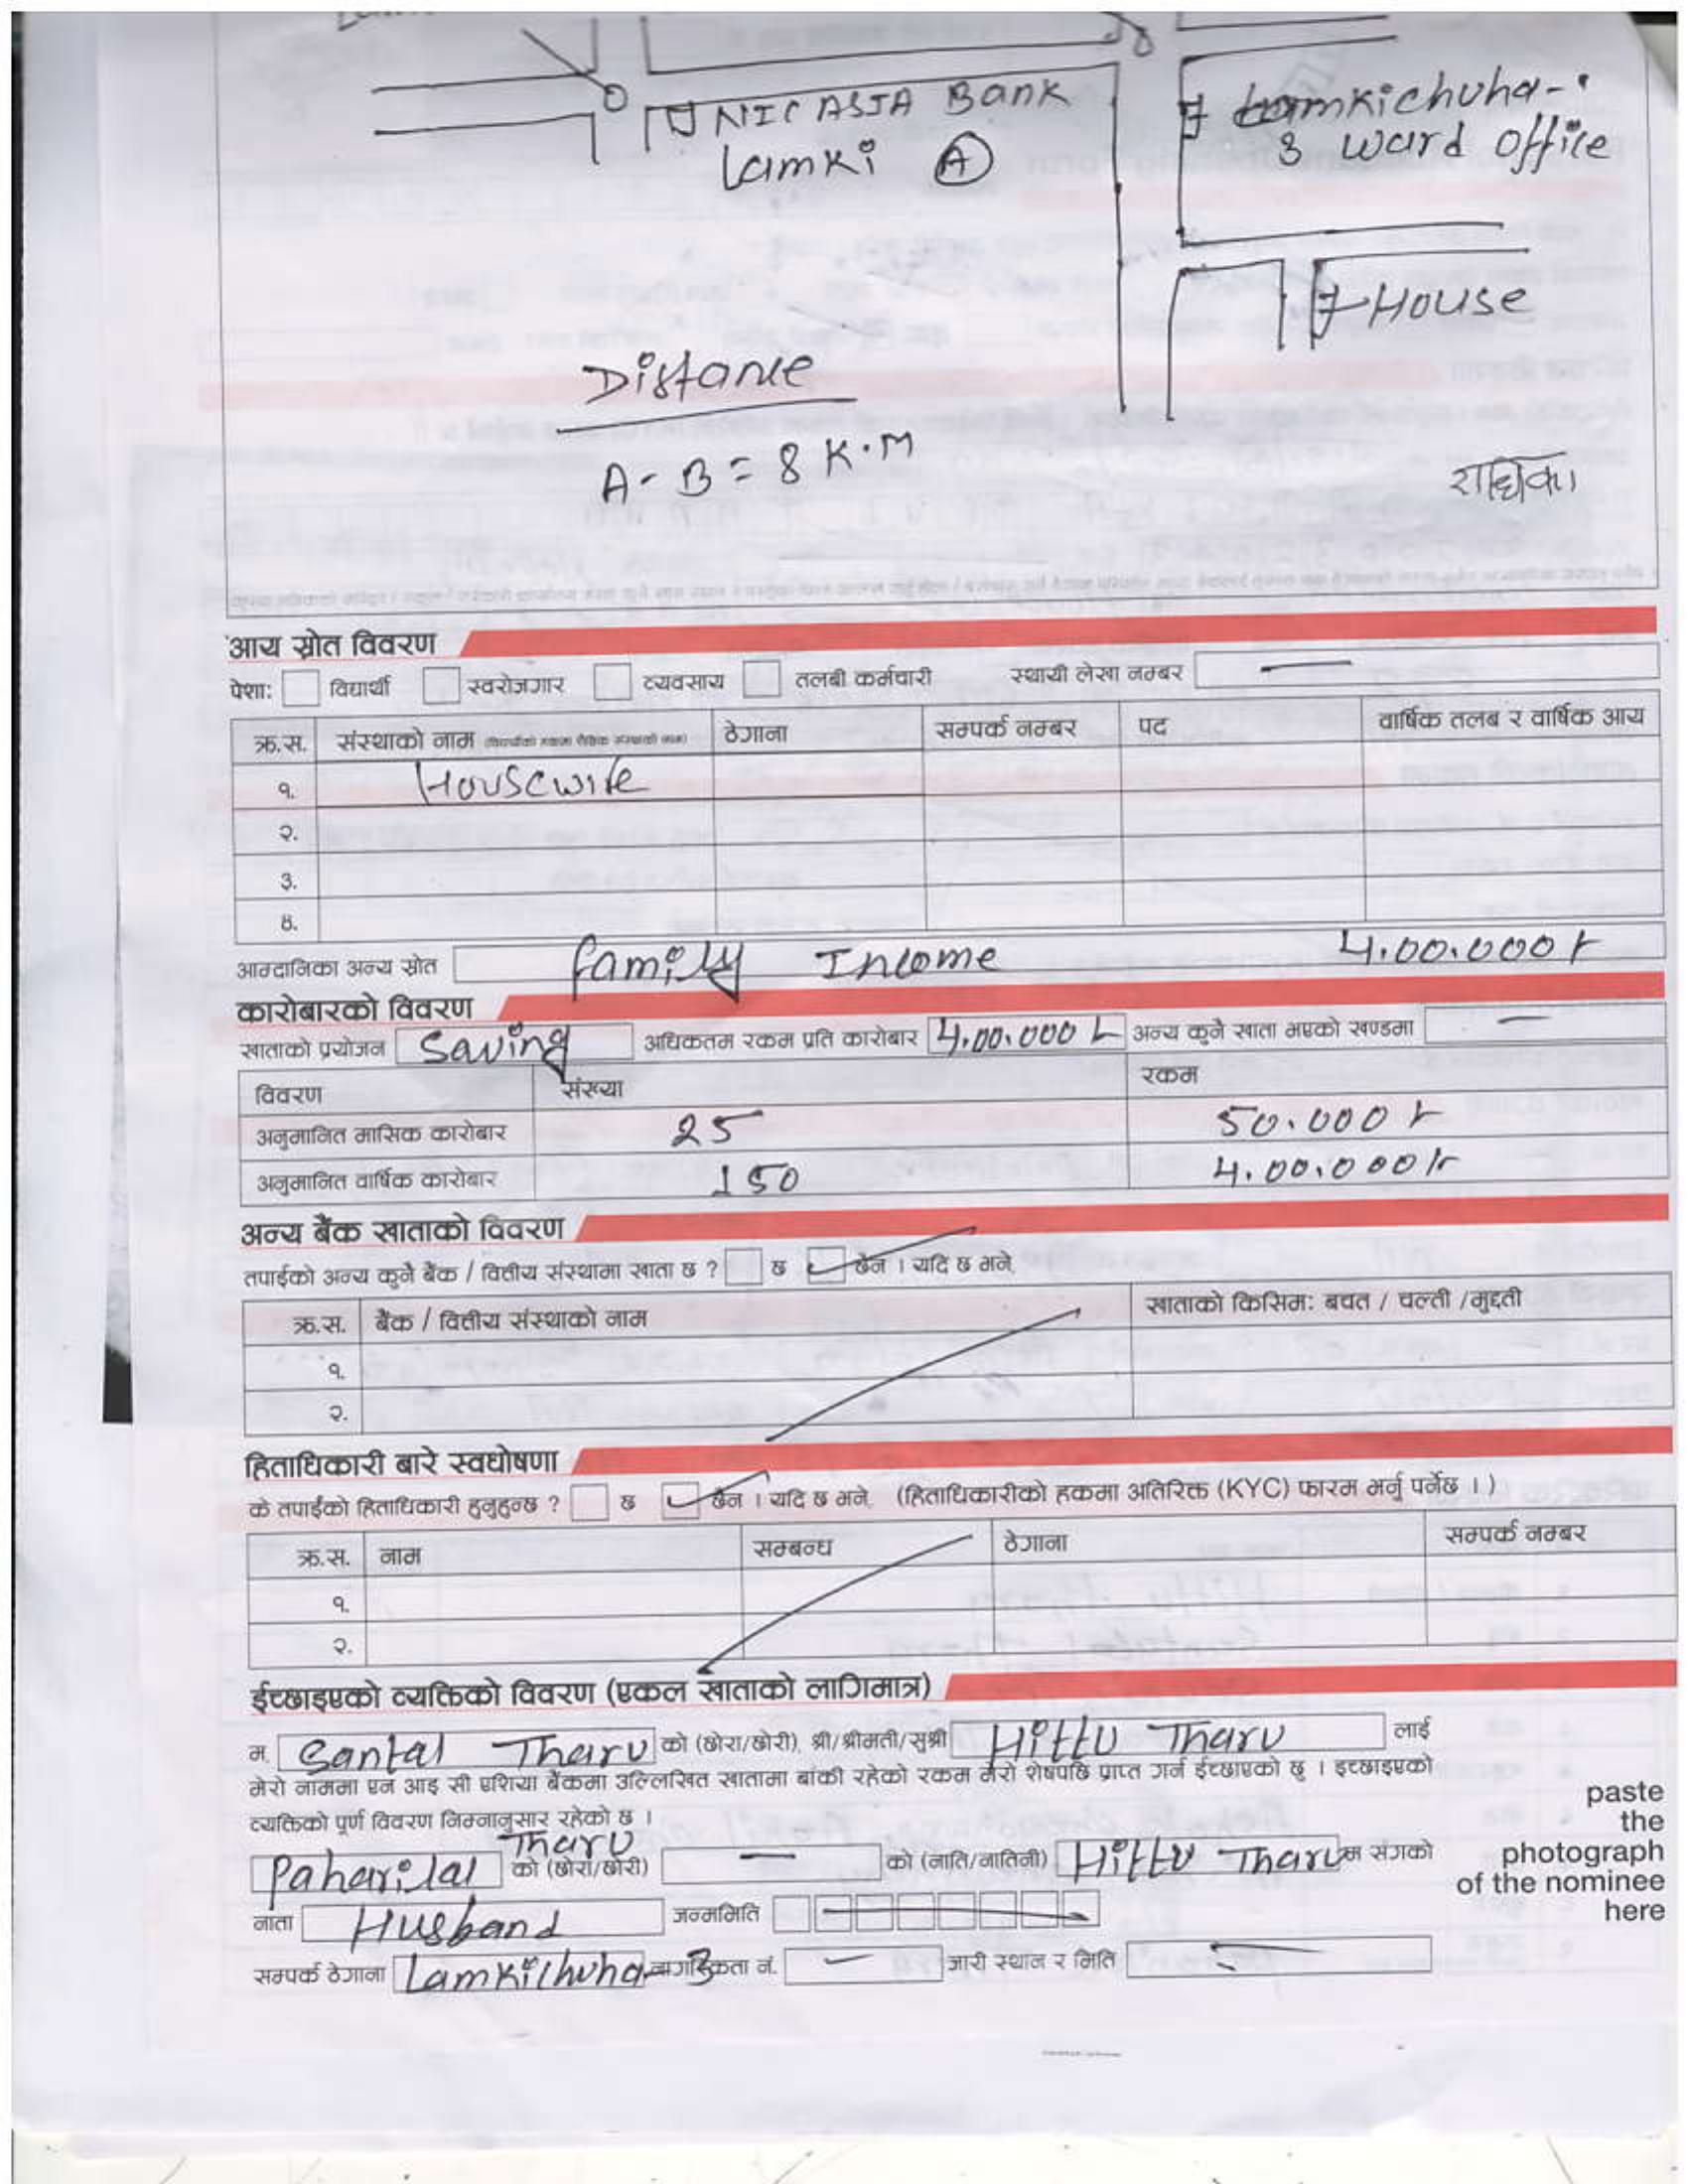 NIC ASIA Bank
Lamki A
Lamkichuha-
3 ward office
House
Distance
A - B = 8 K.M
राधिका
आय स्रोत विवरण
पेशा: विद्यार्थी स्वरोजगार व्यवसाय तलबी कर्मचारी स्थायी लेखा नम्बर —
क्र.स. संस्थाको नाम ठेगाना सम्पर्क नम्बर पद वार्षिक तलब र वार्षिक आय
१. Housewife
२.
३.
४.
आम्दानिका अन्य स्रोत family Income 4.00.000/-
कारोबारको विवरण
खाताको प्रयोजन Saving अधिकतम रकम प्रति कारोबार 4.00.000/- अन्य कुनै खाता भएको खण्डमा —
विवरण संख्या रकम
अनुमानित मासिक कारोबार 25 50.000/-
अनुमानित वार्षिक कारोबार 150 4.00.000/-
अन्य बैंक खाताको विवरण
तपाईको अन्य कुनै बैंक / वित्तीय संस्थामा खाता छ ? छ छैन । यदि छ भने,
क्र.स. बैंक / वित्तीय संस्थाको नाम खाताको किसिम: बचत / चल्ती /मुद्दती
१.
२.
हिताधिकारी बारे स्वघोषणा
के तपाईंको हिताधिकारी हुनुहुन्छ ? छ छैन । यदि छ भने, (हिताधिकारीको हकमा अतिरिक्त (KYC) फारम भर्नु पर्नेछ । )
क्र.स. नाम सम्बन्ध ठेगाना सम्पर्क नम्बर
१.
२.
ईच्छाइएको व्यक्तिको विवरण (एकल खाताको लागिमात्र)
म, Santal Tharu को (छोरा/छोरी), श्री/श्रीमती/सुश्री Hittu Tharu लाई
मेरो नाममा एन आइ सी एशिया बैंकमा उल्लिखित खातामा बांकी रहेको रकम मेरो शेषपछि प्राप्त गर्न ईच्छाएको छु । इच्छाइएको
व्यक्तिको पूर्ण विवरण निम्नानुसार रहेको छ ।
Paharilal Tharu को (छोरा/छोरी) — को (नाति/नातिनी) Hittu Tharu म संगको
नाता Husband जन्ममिति
सम्पर्क ठेगाना Lamkichuha-3 नागरिकता नं. — जारी स्थान र मिति —
paste
the
photograph
of the nominee
here